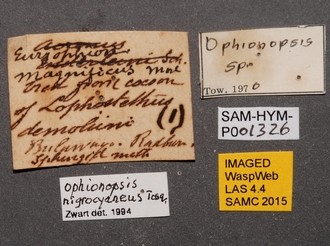 Euryophion
magnificus
bred from cocoon
of Lophostethus
demolini
(1)
Bulawayo. Rhodesia.
Ophionopsis
nigrocyaneus Tosq.
Zwart det. 1994
Ophionopsis
sp.
Tow. 1970
SAM-HYM-
P001326
IMAGED
WaspWeb
LAS 4.4
SAMC 2015